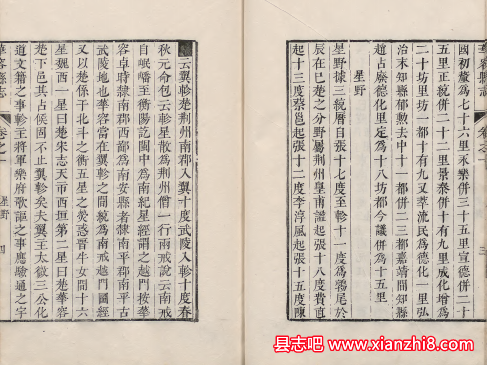 國初釐爲七十六里永樂併三十五里宣德併二十
五里正統併二十二里景泰併十有九里成化增爲
二十坊里坊一都十有九又莘流民爲德化一里弘
治末知縣郁勲去中十一都併二三都嘉靖間知縣
趙古廢德化里定爲十八坊都今議併爲十五
星野
星野據三統曆自張十七度至軫十一度爲鶉尾於
辰在巳楚之分野屬荆州皇甫謐起張十八度費直
起十三度蔡邕起張十二度李淳風起張十五度陳
卷之一
三
云翼軫楚荆州南郡入翼十度武陵入軫十度春
秋元命包云軫星散爲荆州僧一行兩戒說云南戒
自岷嶓至衡陽訖閩中爲南紀星經謂之越門按華
容卓時隸南郡西鄙爲南安縣者隸南平郡南平古
武陵地也華容當在翼軫之間統爲南戒越門圖經
又以楚係于北斗之衡五星之熒惑晉牛女間十六
星魏西一星曰楚宋志天市西垣第二星曰楚華容
楚下邑其占候固不止翼軫矣夫翼主太微三公化
道文籍之事軫主將軍樂府歌謳之事應驗通之宇
華容縣志
卷之一
星野
四
县志吧
www.xianzhi8.com